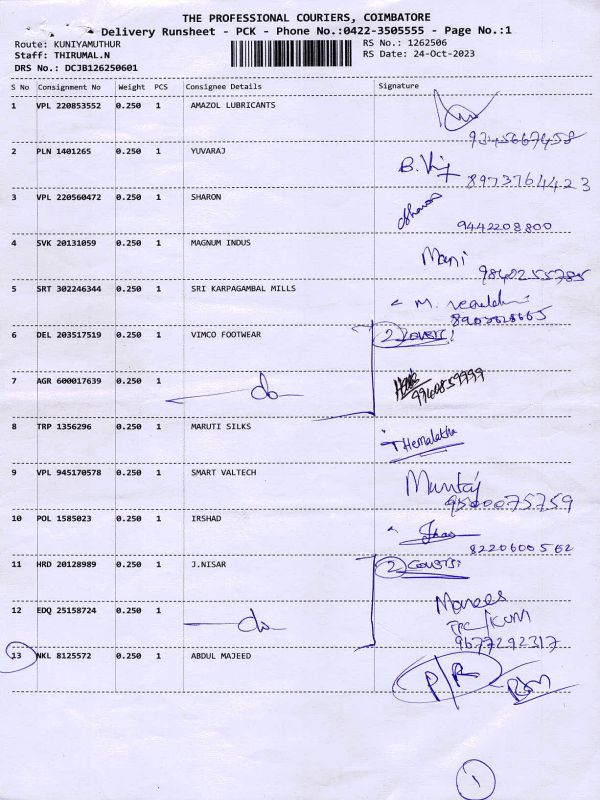 THE PROFESSIONAL COURIERS, COIMBATORE
Delivery Runsheet - PCK - Phone No.:0422-3505555 - Page No.:1
Route: KUNIYAMUTHUR
RS No.: 1262506
Staff: THIRUMAL.N
RS Date: 24-Oct-2023
DRS No.: DCJB126250601
S No Consignment No Weight PCS Consignee Details Signature
1 VPL 220853552 0.250 1 AMAZOL LUBRICANTS
9345667458
2 PLN 1401265 0.250 1 YUVARAJ
8973764423
3 VPL 220560472 0.250 1 SHARON
Sharon
9442208800
4 SVK 20131059 0.250 1 MAGNUM INDUS
Mani
9840255785
5 SRT 302246344 0.250 1 SRI KARPAGAMBAL MILLS
M.
6 DEL 203517519 0.250 1 VIMCO FOOTWEAR 2 Covers!
7 AGR 600017639 0.250 1 do
9940859999
8 TRP 1356296 0.250 1 MARUTI SILKS
T Hemalatha
9 VPL 945170578 0.250 1 SMART VALTECH
Muntaj
9500075759
10 POL 1585023 0.250 1 IRSHAD
8220600562
11 HRD 20128989 0.250 1 J.NISAR 2 Covers:
12 EDQ 25158724 0.250 1 do
TPC/KUM
9677292317
13 NKL 8125572 0.250 1 ABDUL MAJEED
P/R
1